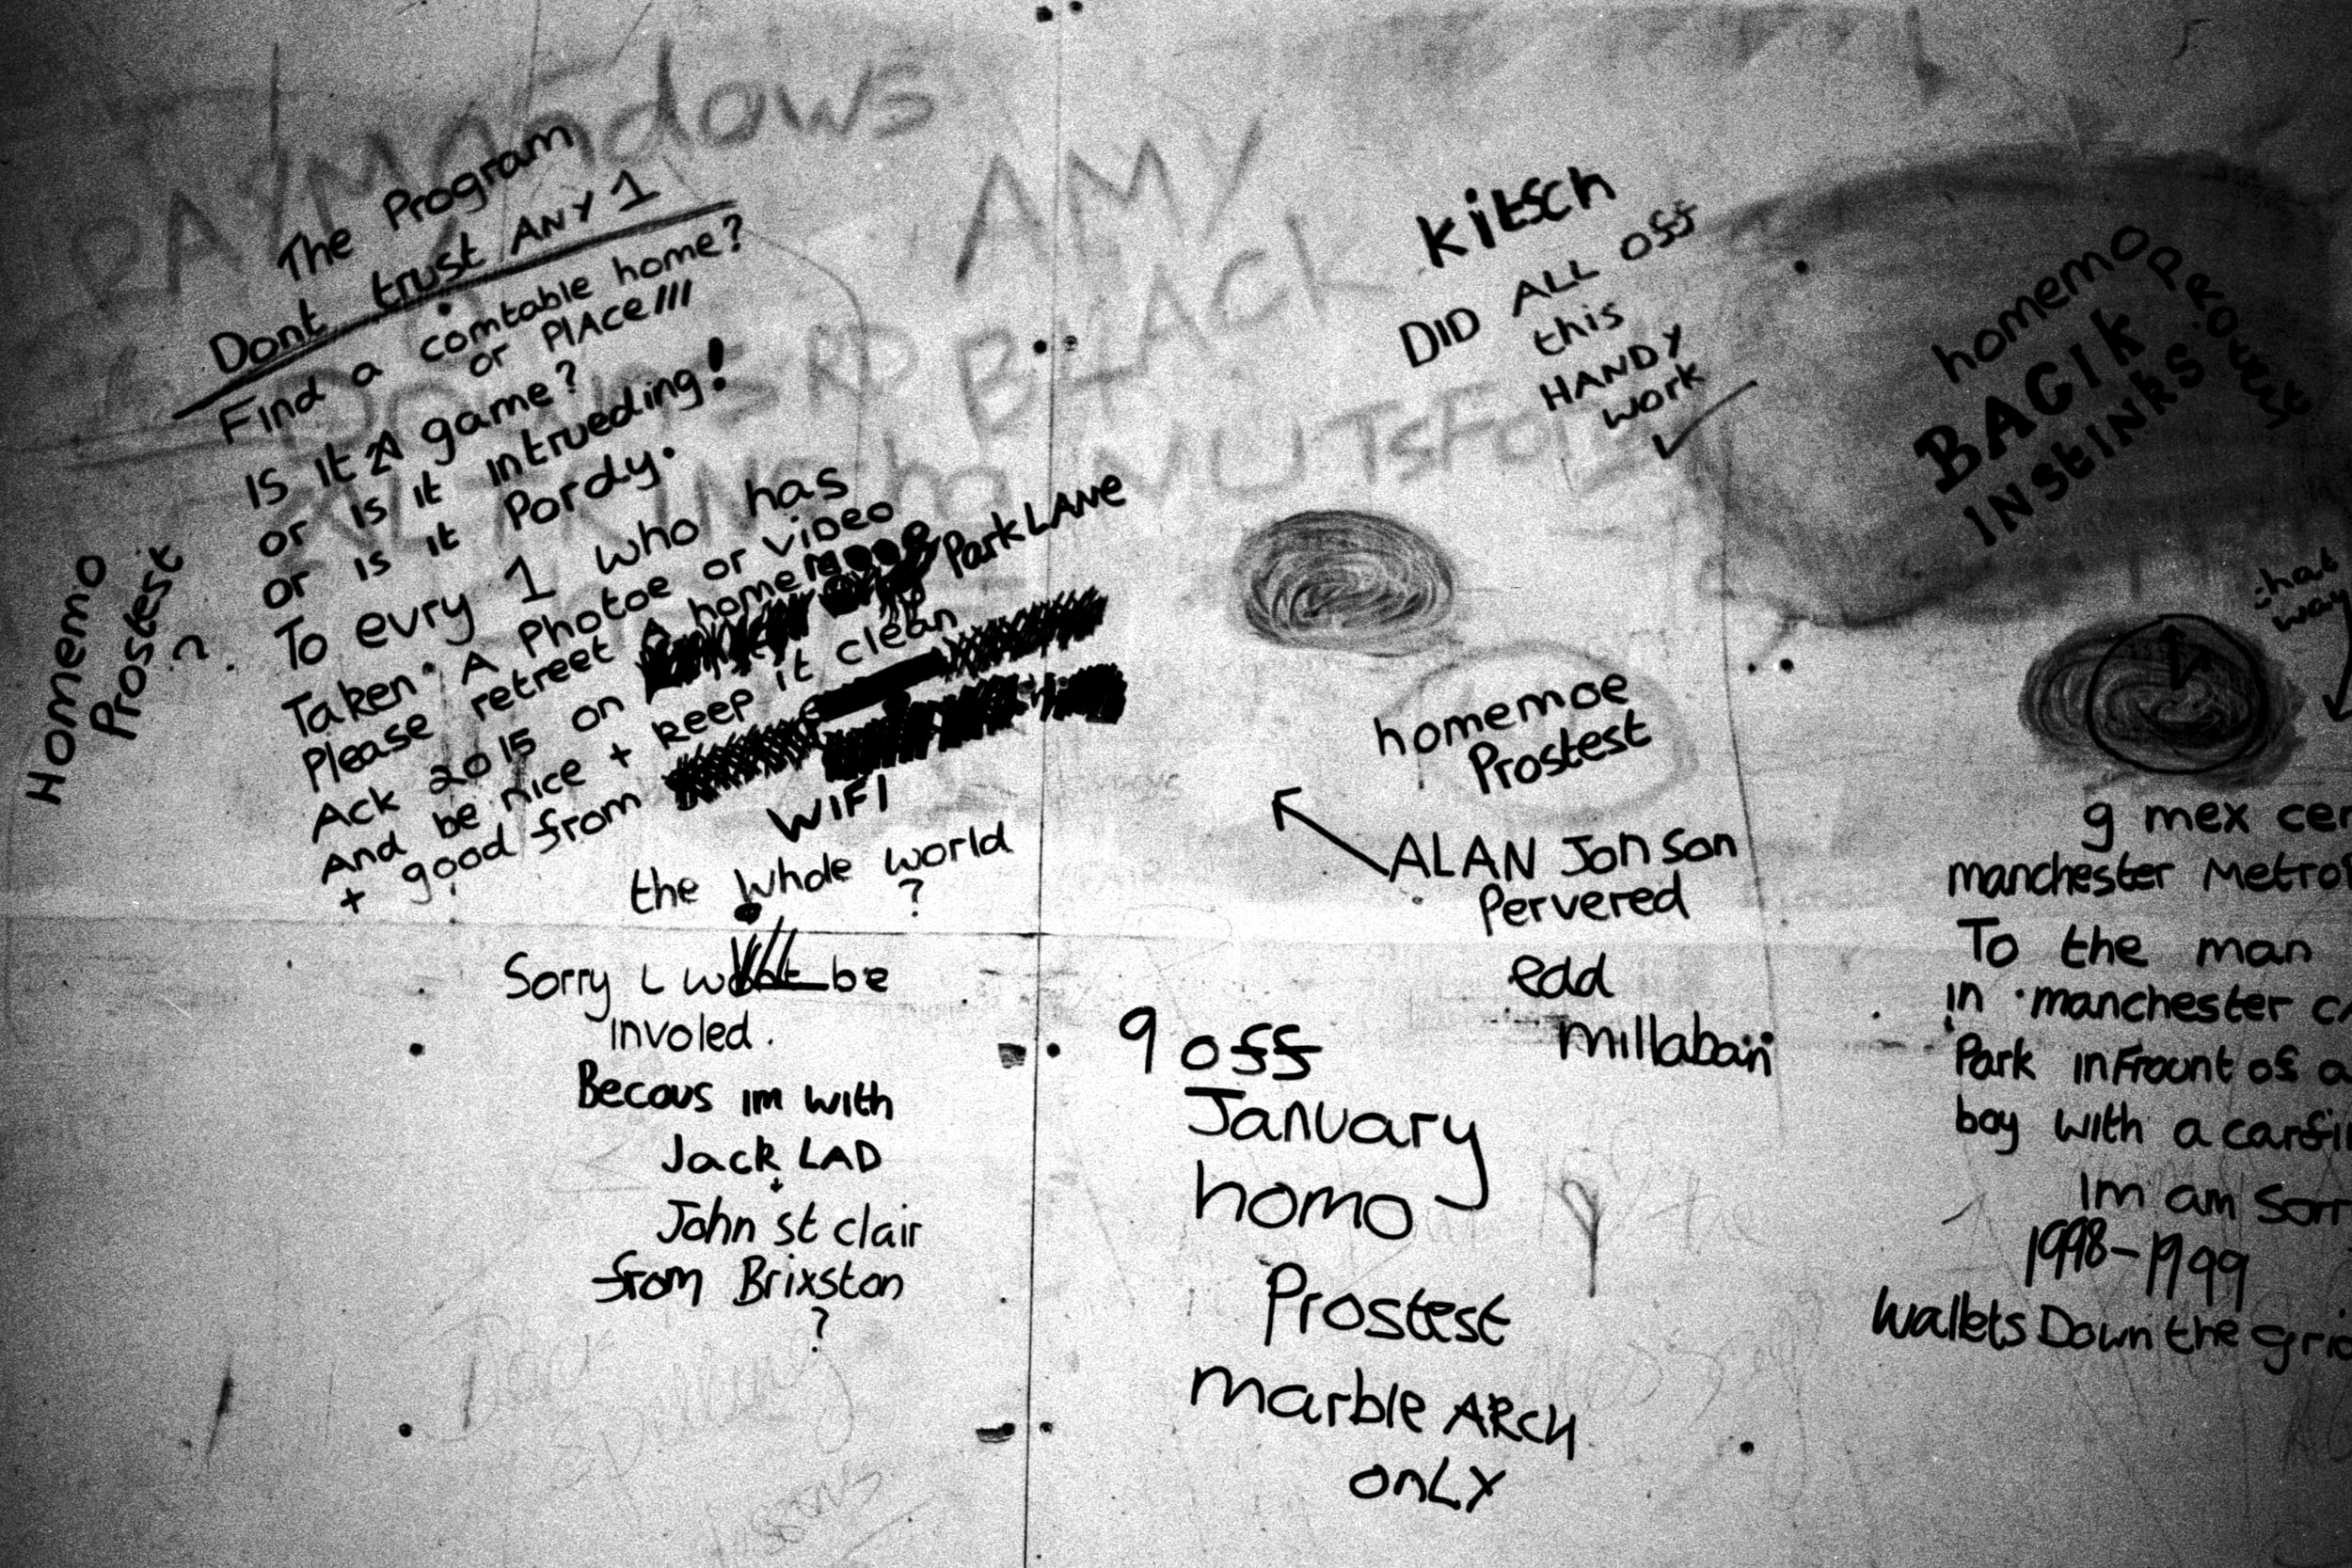 RAYMANdows
AMY
BLACK
NUTsFord
The Program
Dont trust ANY 1
Find a comtable home?
or PlAce!!!
Is it A game?
or is it intrueding!
or is it Pordy.
To evry 1 who has
Taken A Photoe or video
Please retreet A homemooe
Ack 2015 on ParkLANe
And be nice + keep it clean
+ good from
WIFI
the whole world
?
Sorry i wont be
involed.
Becous im with
Jack LAD
+
John st clair
from Brixston
?
Homemo
Prostest
?
kitsch
DID ALL off
this
HANDY
work
homemo PROtest
BACIk
INStINkS
that
way
homemoe
Prostest
ALAN Jonson
Pervered
edd
millaban
9 off
January
homo
Prostest
marble ARCH
onLY
g mex cen
manchester Metro
To the man
in manchester c
Park inFrount of a
boy with a carfi
Im am Sorr
1998-1999
wallets Down the gri